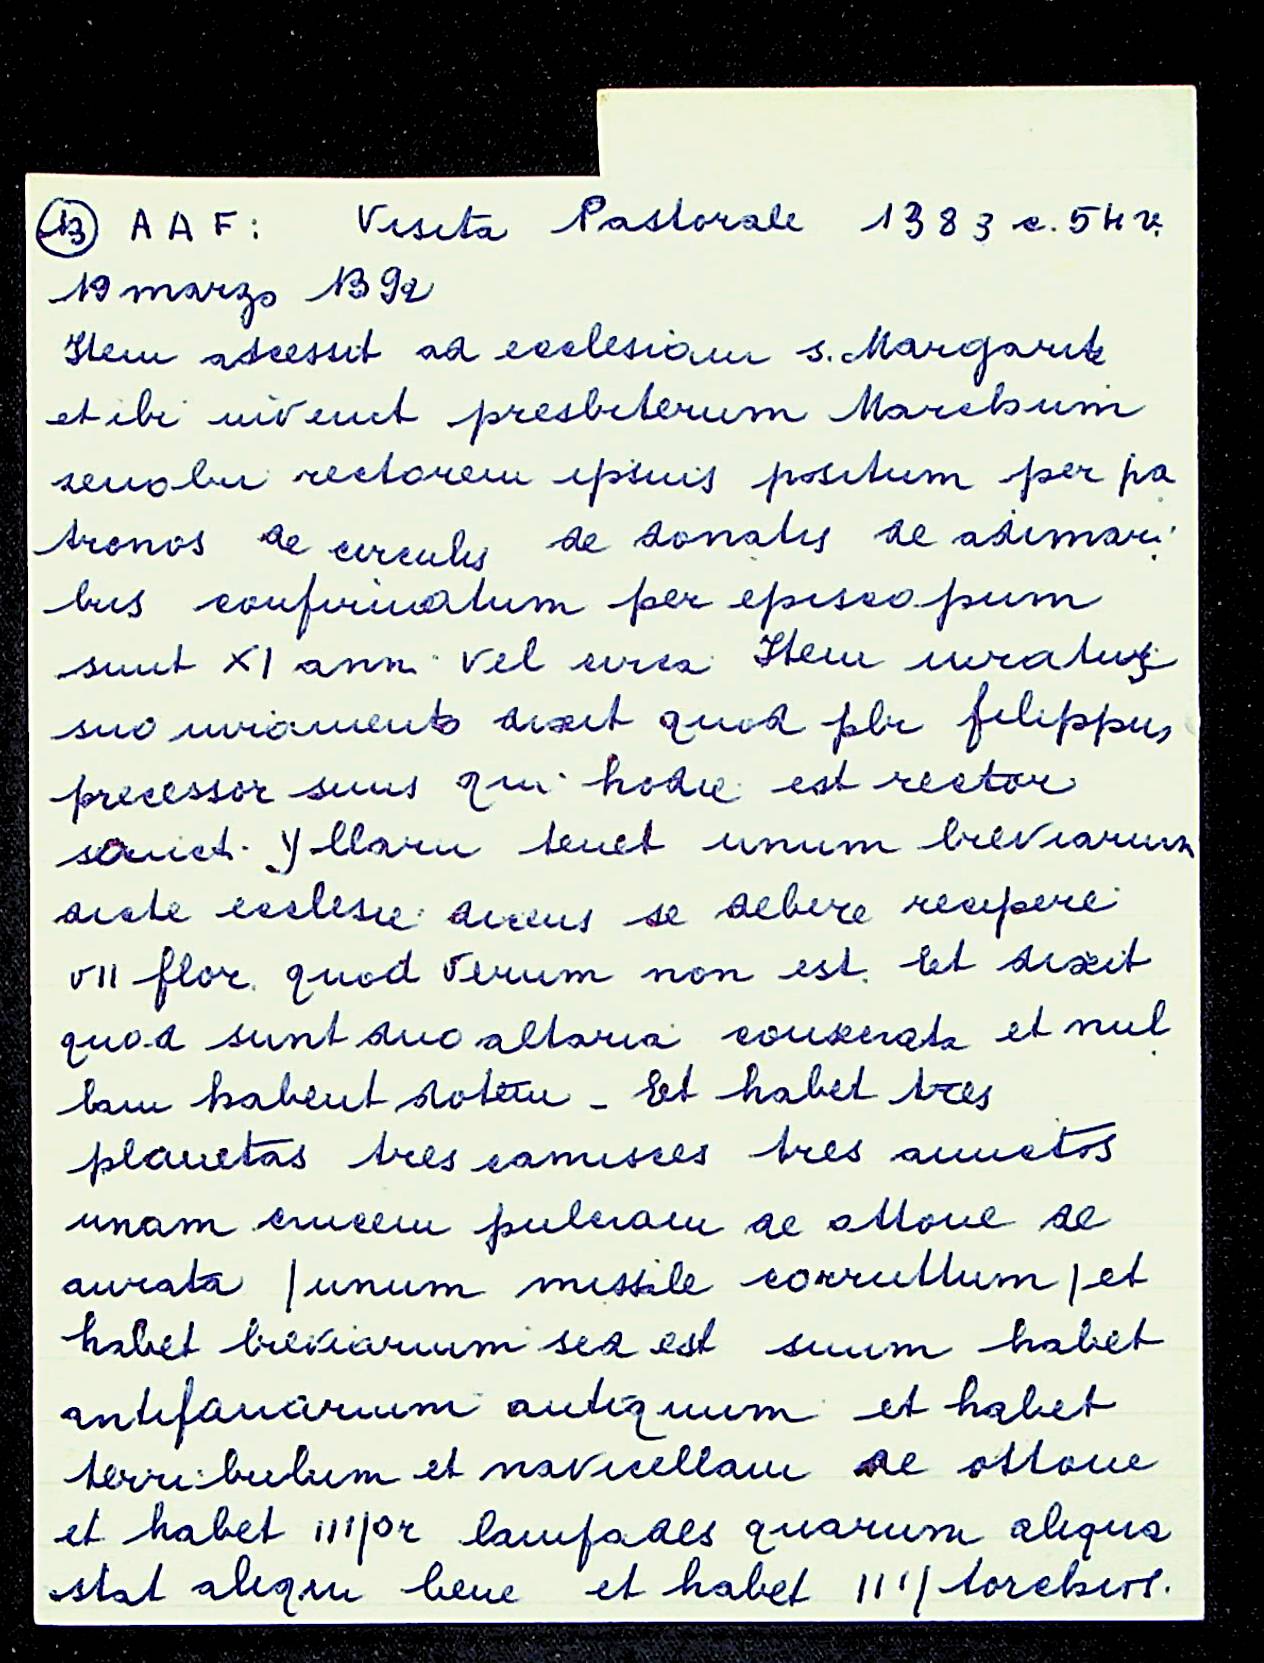 13 A A F: Visita Pastorale 1383 c. 54 v.
19 marzo 1392
Item adcessit ad ecclesiam s. Margarite
et ibi invenit presbiterum Marchum
zenobii rectorem ipsius positum per pa
tronos de circulis de donatis de adimari
bus confirmatum per episcopum
sunt XI anni vel circa Item iuratus
suo iuramento dixit quod pbr filippus
precessor suus qui hodie est rector
sancti Yllarii tenet unum breviarium
dicte ecclesie dicens se debere recipere
VII flor. quod verum non est. Et dixit
quod sunt duo altaria conserata et nul
lam habent dotem - Et habet tres
planetas tres camisces tres amictos
unam crucem pulcram de ottone de
aurata / unum missile corruttum / et
habet breviarium sed est suum habet
antifanarium antiquum et habet
terribulum et navicellam de ottone
et habet IIII/or lampades quarum aliqua
stat aliqu bene et habet IIII torchios.